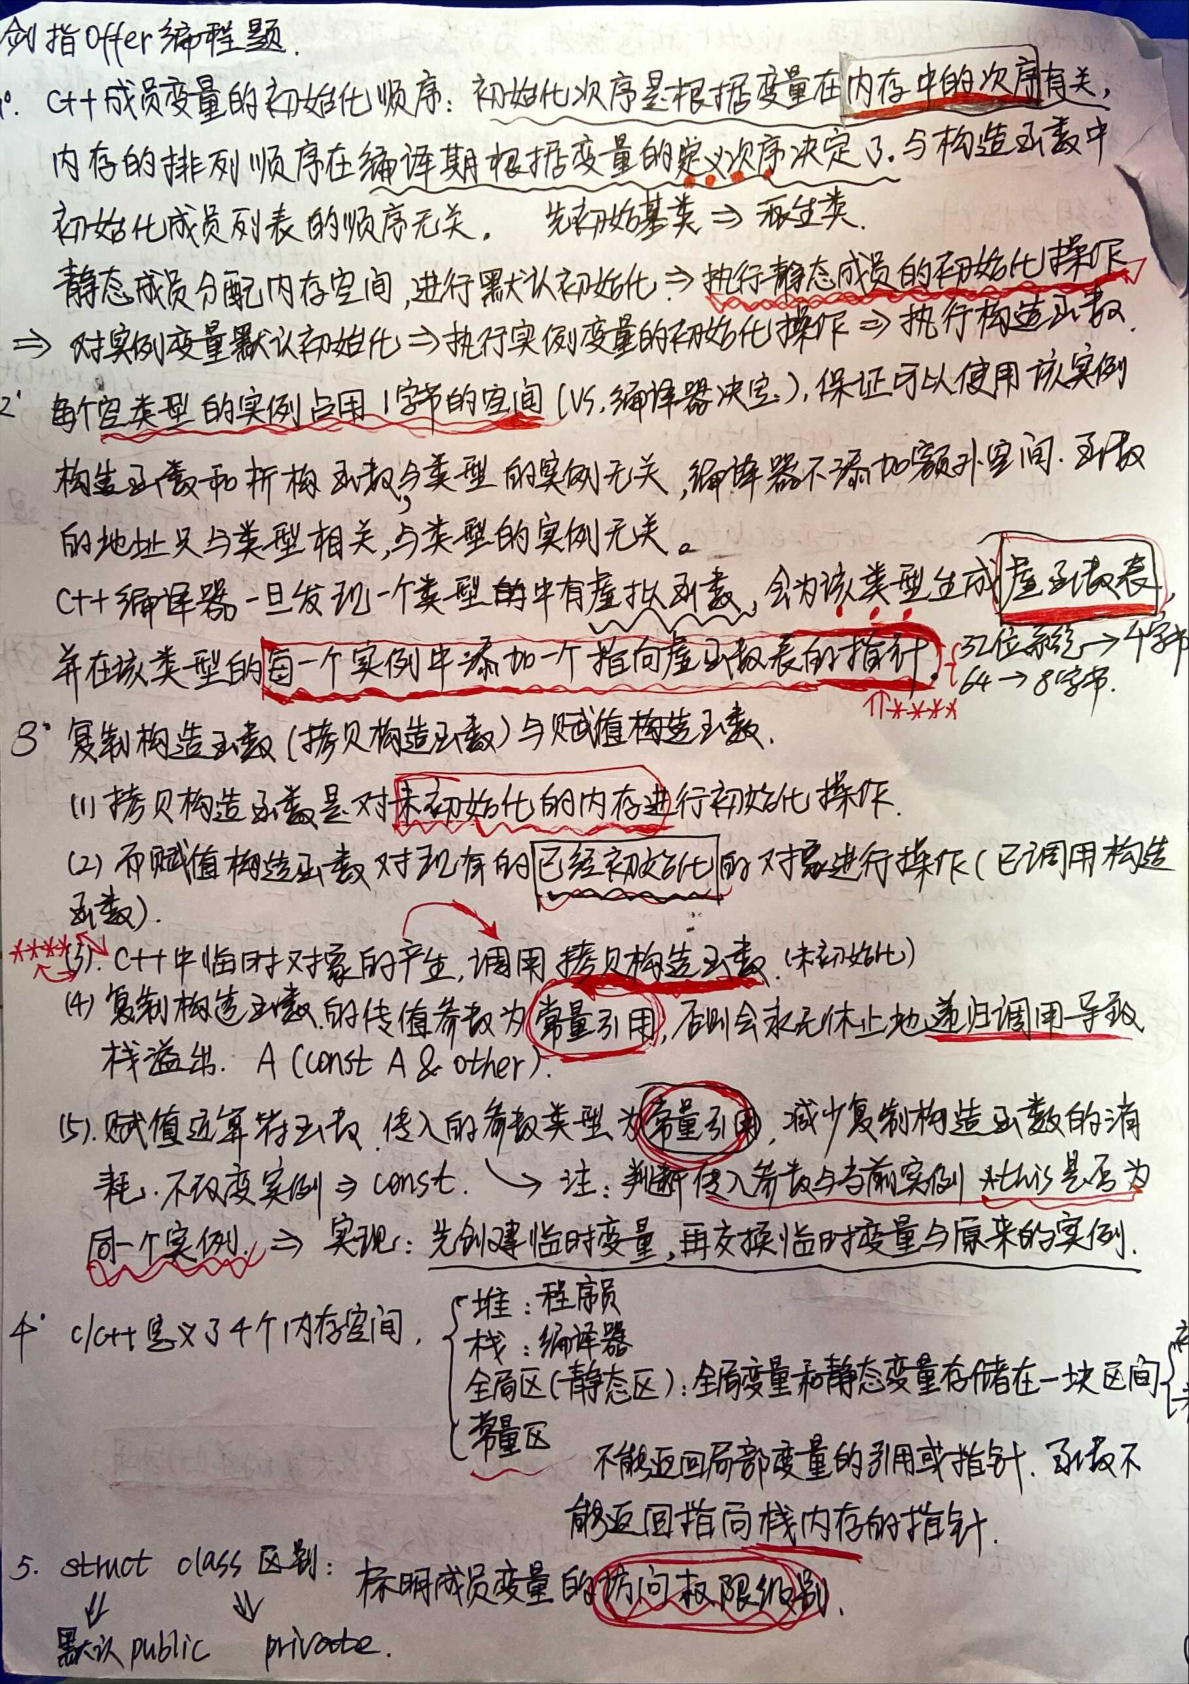 剑指Offer编程题.
1° C++成员变量的初始化顺序：初始化次序是根据变量在内存中的次序有关,
内存的排列顺序在编译期根据变量的定义次序决定了.与构造函数中
初始化成员列表的顺序无关. 先初始基类⇒派生类.
静态成员分配内存空间,进行默认初始化⇒执行静态成员的初始化操作
⇒ 对实例变量默认初始化⇒执行实例变量的初始化操作⇒执行构造函数.
2° 每个空类型的实例占用1字节的空间(VS,编译器决定.),保证可以使用该实例
构造函数和析构函数与类型的实例无关,编译器不添加额外空间.函数
的地址只与类型相关,与类型的实例无关。
C++编译器一旦发现一个类型中有虚拟函数,会为该类型生成虚函数表,
并在该类型的每一个实例中添加一个指向虚函数表的指针. {32位系统→4字节
64→8字节.
⇑****
3° 复制构造函数(拷贝构造函数)与赋值构造函数.
(1) 拷贝构造函数是对未初始化的内存进行初始化操作.
(2) 而赋值构造函数对现有的已经初始化的对象进行操作(已调用构造
函数).
**** (3). C++中临时对象的产生,调用拷贝构造函数.(未初始化)
(4) 复制构造函数的传值参数为常量引用,否则会永无休止地递归调用导致
栈溢出. A (const A & other).
(5). 赋值运算符函数.传入的参数类型为常量引用,减少复制构造函数的消
耗.不改变实例⇒const. → 注：判断传入参数与当前实例*this是否为
同一个实例. ⇒ 实现：先创建临时变量,再交换临时变量与原来的实例.
4° c/c++定义了4个内存空间. {堆：程序员
栈：编译器
全局区(静态区)：全局变量和静态变量存储在一块区间{
常量区
不能返回局部变量的引用或指针.函数不
能返回指向栈内存的指针.
5. struct class区别：标明成员变量的访问权限级别.
⇓ ⇓
默认public private.